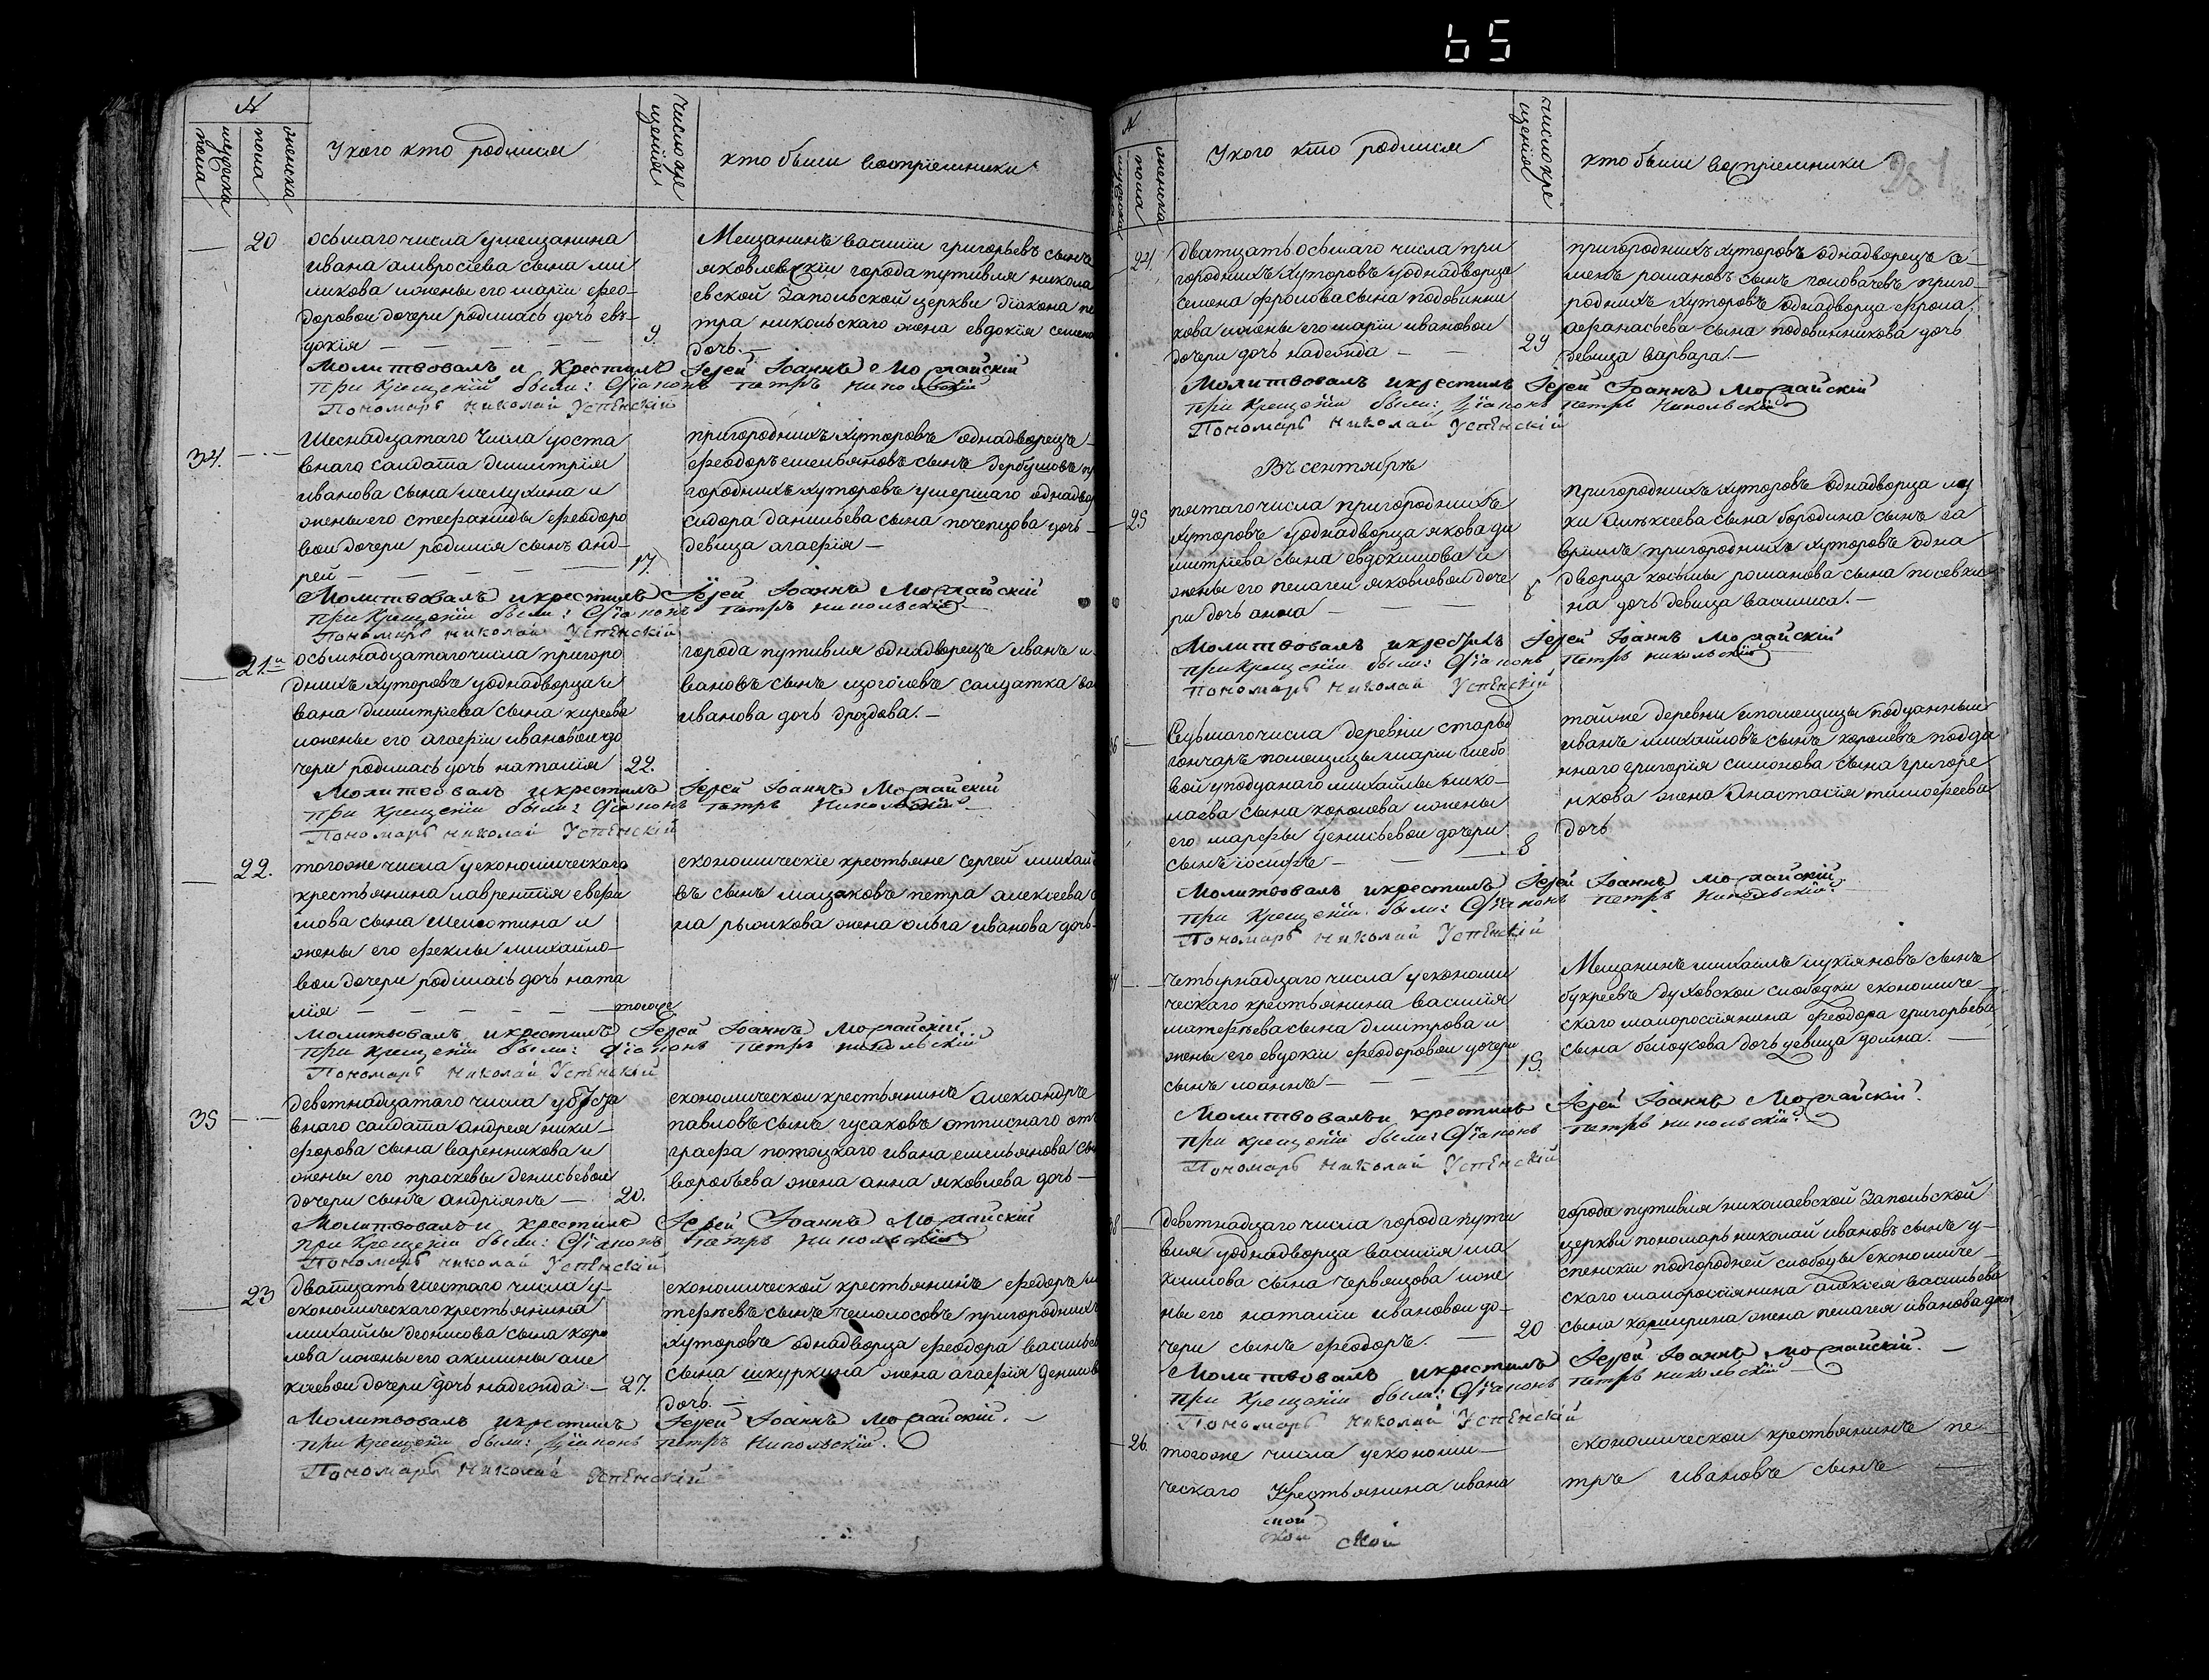 65
№
мужеска пола
женска пола
У кого кто родился
число крещения
кто были восприемники
20
осьмаго числа умещанина
ивана амвросіева сына ми
ликова ижены его маріи фео-
доровои дочери родилась дочь евъ-
докія
9.
Мещанинъ василіи григорьевъ сынъ
яковлевскіи города путивля никола
евской Запольской церкви діакона пе
тра никольскаго жена евдокія семено
дочь.
Молитвовалъ и Крестилъ Іерей Іоаннъ Можайскій
при крещеніи были: Діаконъ петръ никольскій
Пономарь николай Успенскій
34.
Шеснадцатаго числа уоста
внаго салдата димитрія
иванова сына шелухина и
жены его стефаниды феодоро
вои дочери родился сынъ анд-
рей
17.
пригороднихъ хуторовъ однадворецъ
феодоръ емельяновъ сынъ дербушовъ пр
городнихъ хуторовъ умершаго однадвор
сидора данильева сына почепцова дочь
девица агафія
Молитвовалъ икрестилъ Іерей Іоаннъ Можайскій
при крещеніи были: Діаконъ петръ никольскій
Пономарь николай Успенскій
21.
осьмнадцатагочисла пригоро
днихъ хуторовъ уоднадворца и
вана димитріева сына киреева
ижены его агафіи ивановои до
чери родилась дочь наталия
22.
города путивля однадворецъ иванъ и
вановъ сынъ щоголевъ салдатка ва
иванова дочь дроздова.
Молитвовалъ икрестилъ Іерей Іоаннъ Можайскій
при крещеніи были: Діаконъ петръ Никольскій
Пономарь николай Успенскій
22.
тогоже числа уекономическаго
крестьянина лаврентія евфи
мова сына шелотина и
жены его феклы михайло-
вои дочери родилась дочь ната
лія
тогоже
економическіе крестьяне сергей михай
въ сынъ мацаковъ петра алексеева с
на рыжкова жена ольга иванова дочь
молитвовалъ икрестилъ Іерей Іоаннъ Можайскій
при крещеніи были: діаконъ Петръ никольскій
Пономарь николай Успенскій
35
деветнадцатаго числа
внаго салдата андрея ники-
форова сына варенникова и
жены его прасковьи денисьевои
дочери сынъ андріянъ
20.
економическои крестьянинъ александръ
павловъ сынъ гусаковъ отписнаго от
графа потоцкаго ивана емельянова сы
воробьева жена анна яковлева дочь
Молитвовалъ и крестилъ Іерей Іоаннъ Можайскій
при крещеніи были: Діаконъ Петръ никольскій
Пономарь николай Успенскій
23
дватцать шестаго числа у-
економическаго крестьянина
михайлы деонисова сына коро
лева ижены его акилины але
ксеевои дочери дочь надежда
27.
економической крестьянинъ федоръ м
тефеевъ сынъ чемолосовъ пригороднихъ
хуторовъ однадворца феодора васильев
сына шкуркина жена агафія денисов
дочь.
Молитвовалъ икрестилъ Іерей Іоаннъ Можайскій.
при крещеніи были: Діаконъ петръ Никольскій.
Пономарь Николай Успенскій
№
мужеска
женска пола
У кого кто родился
число крещения
кто были восприемники
281
24.
дватцать осьмаго числа при
городнихъ хуторовъ уоднадворца
семена фролова сына подовинни
кова ижены его маріи ивановои
дочери дочь надежда
29
пригороднихъ хуторовъ однадворецъ се-
менъ романовъ сынъ головачевъ приго-
роднихъ хуторовъ однадворца фрола
афанасьева сына подовинникова дочь
девица варвара.
Молитвовалъ икрестилъ Іерей Іоаннъ Можайскій
при крещеніи были: Діаконъ петръ Никольскій
Пономарь николай Успенскій
Въ сентябре
25
пятаго числа пригороднихъ
хуторовъ уоднадворца якова ди
митріева сына евдокимова и
жены его пелагеи яковлевои доче
ри дочь анна
6
Пригороднихъ хуторовъ однадворца лу
ки алексеева сына бородина сынъ га
вріилъ пригороднихъ хуторовъ одна
дворца косьмы романова сына посевки
на дочь девица василиса.
Молитвовалъ икрестилъ Іерей Іоаннъ Можайскій
при крещеніи были: Діаконъ Петръ никольскій
Пономарь николай Успенскій
36
Седьмагочисла деревни старых
гончаръ помещицы маріи глебо
вой уподданаго михайлы нико-
лаева сына королева ижены
его марфы денисьевои дочери
сынъ іосифъ
8
тойже деревни ипомещицы подданныи
иванъ михайловъ сынъ королевъ подда
ннаго григорія симонова сына григоре
нкова жена анастасія тимофеева
дочь
Молитвовалъ икрестилъ Іерей Іоаннъ Можайскій.
при крещеніи были: Діаконъ петръ Никольскій.
Пономарь Николай Успенскій
37
четырнадцаго числа уекономи
ческаго крестьянина василія
матфеева сына дмитрова и
жены его евдокіи феодоровои дочери
сынъ иоаннъ
15.
Мещанинъ михаилъ лукіяновъ сынъ
букреевъ духовской слободки економиче-
скаго малороссіянина феодора григорьева
сына белоусова дочь девица домна.
Молитвовалъи крестилъ Іерей Іоаннъ Можайскій.
при крещеніи были: Діаконъ Петръ никольскій.
Пономарь николай Успенскій
38
деветнадцаго числа города пути
вля уоднадворца василія ма
ксимова сына червяцова ижe
ны его наталіи ивановои до-
чери сынъ феодоръ.
20
города путивля николаевской Запольской
церкви пономарь николай ивановъ сынъ у-
спенскіи подгородней слободы економиче-
скаго малороссіянина алексея васильева
сына каширина жена пелагея иванова дочь
Молитвовалъ икрестилъ Іерей Іоаннъ Можайскій.
при крещеніи были: Діаконъ петръ никольскій
Пономарь Николай Успенскій
26.
тогоже числа уекономи-
ческаго Крестьянина ивана
економическои крестьянинъ пе-
тръ ивановъ сынъ
ской
ской